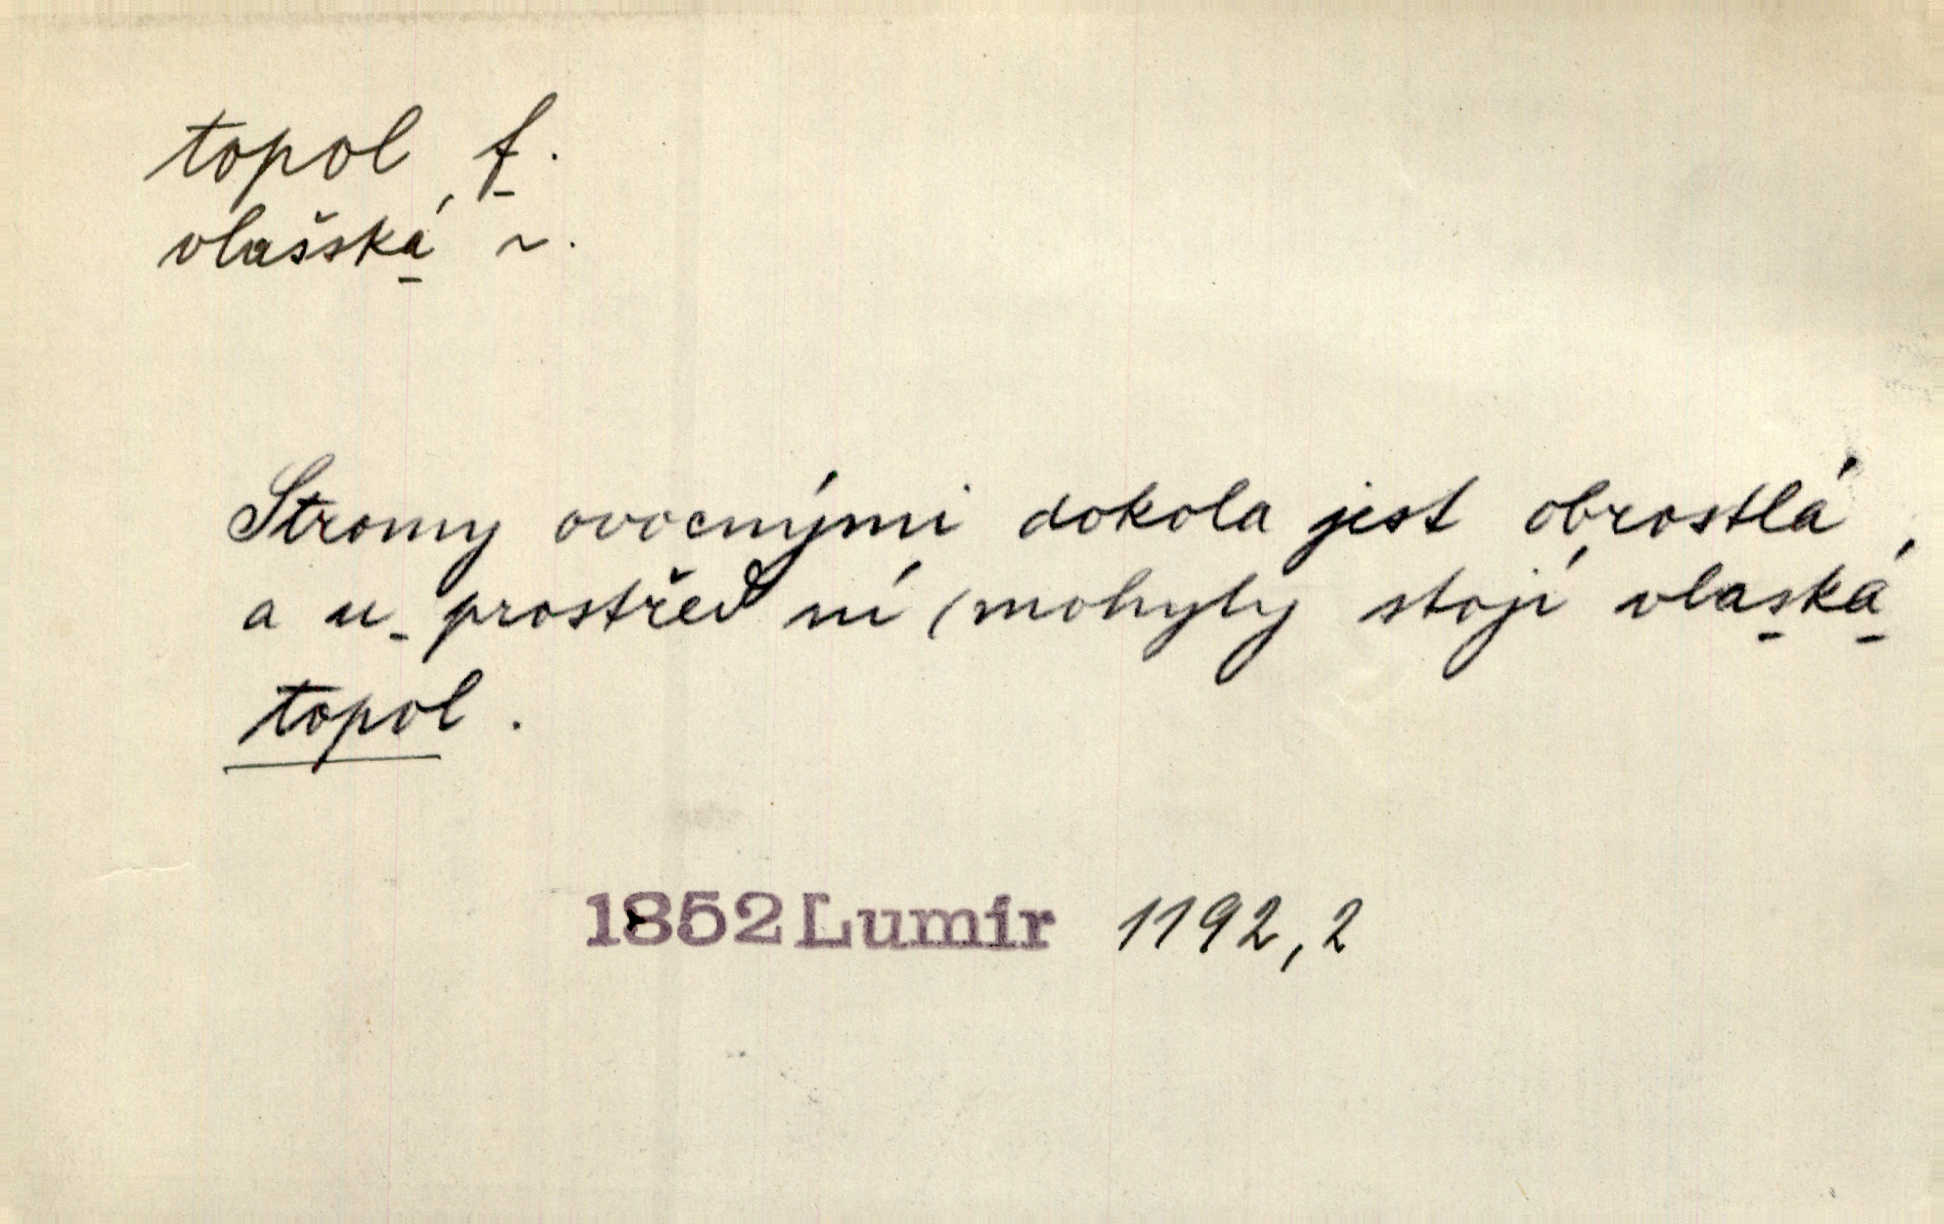 topol, f.
vlašská ~.
Stromy ovocnými dokola jest obrostlá,
a u prostřed ní (mohyly stojí vlaská
topol.
1852 Lumír 1192,2